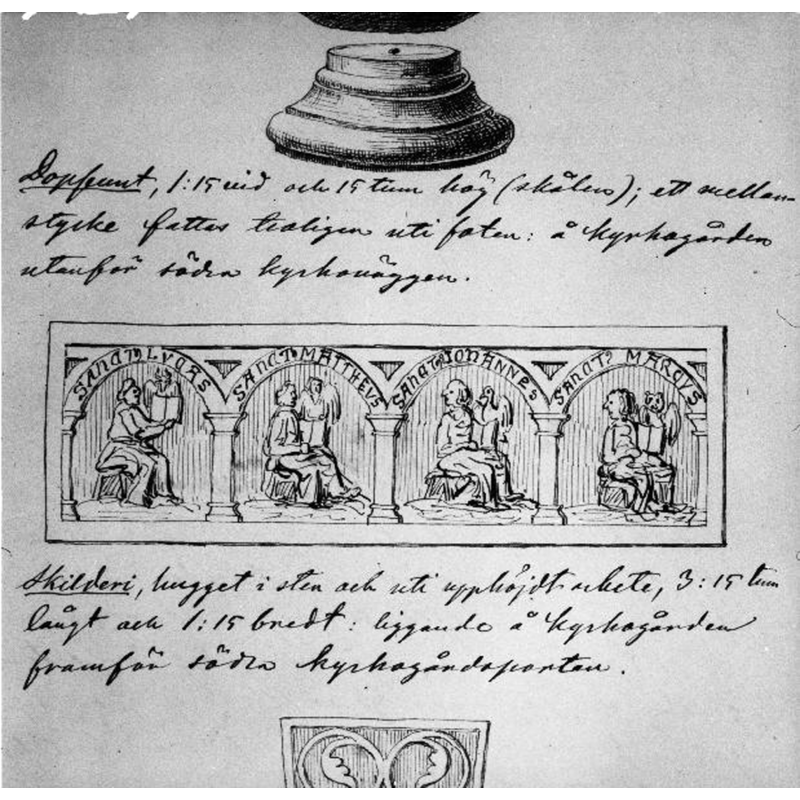 Dopfunt, 1:15 vid och 15 tum hög (skålen); ett mellan-
stycke fattas troligen uti foten: å kyrkogården
utanför södra kyrkoväggen.
SANCT9 LVCAS SANCT9 MATTHEVS SANCT9 IOHANNES SANCT9 MARCVS
Skilderi, hugget i sten och uti upphöjdt arbete, 3:15 tum
långt och 1:15 bredt: liggande å kyrkogården
framför södra kyrkogårdsporten.